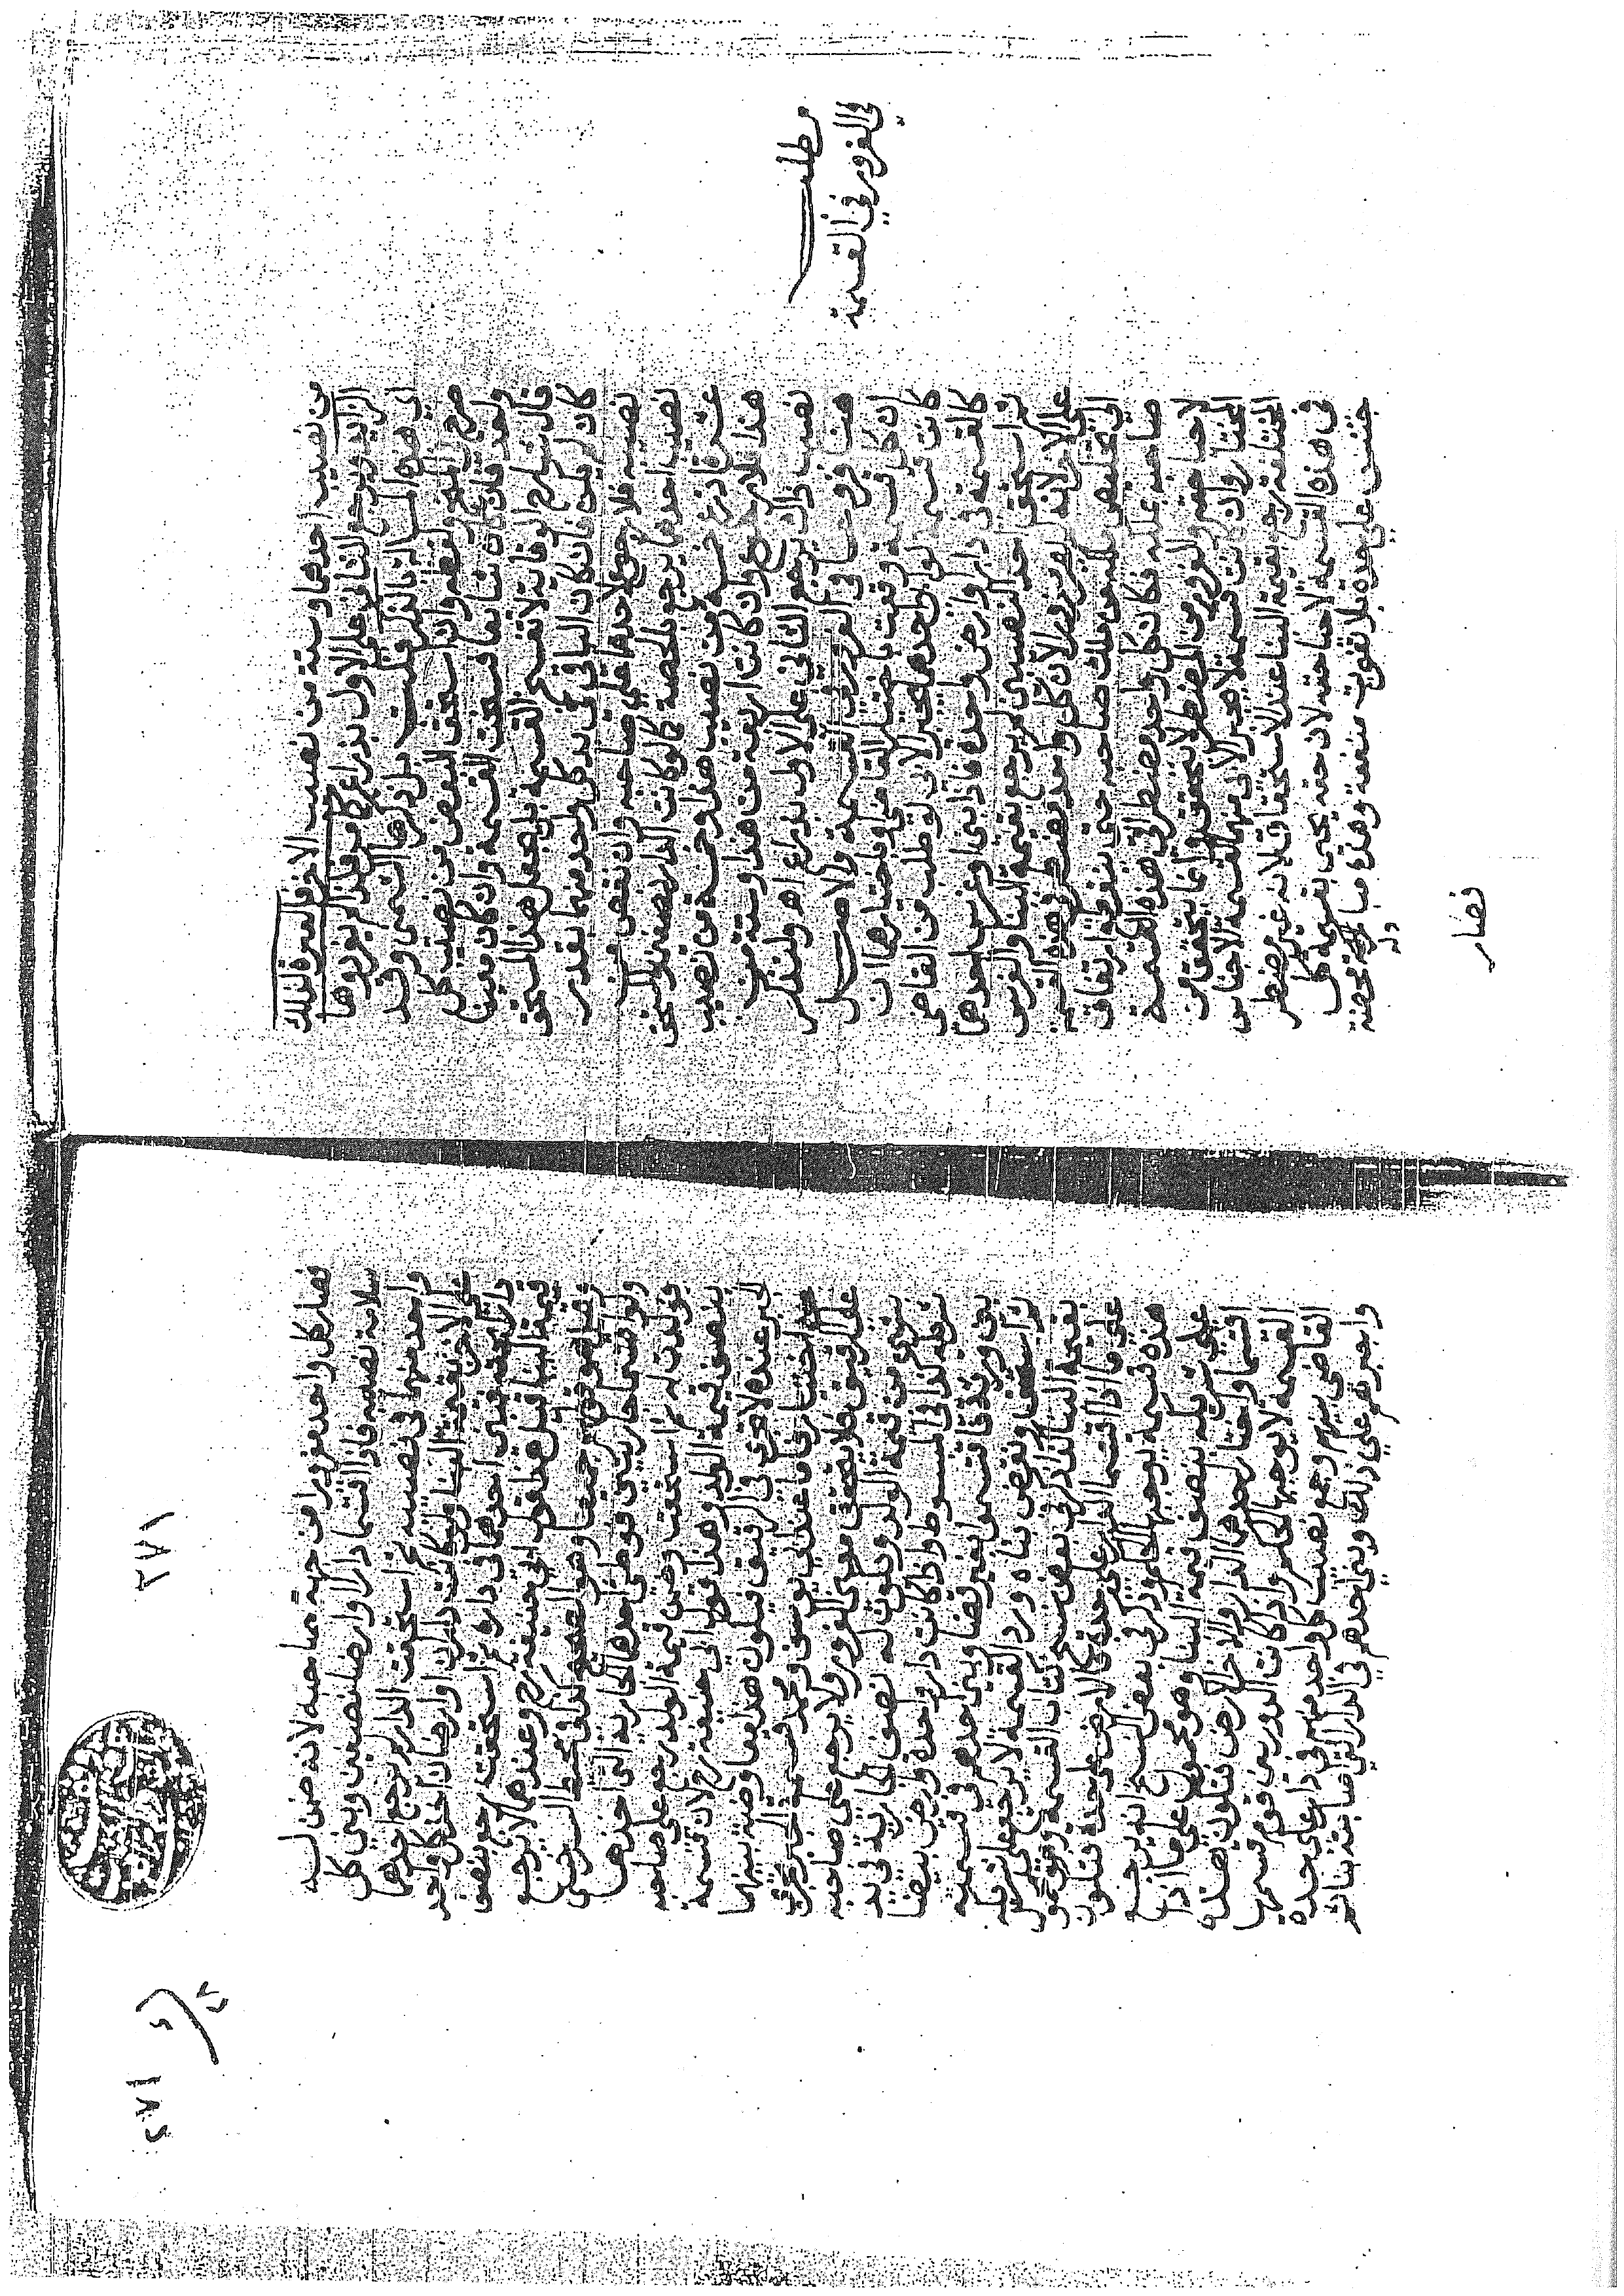 مطلب
في الغرور في القسمة
من نصيب احدهما وستة من نصيب الاخر فالعبرة لذلك
الزايد ويرجع الثاني على الاول بذراع كامل فلذا لم يفردوها
اي هذه المسالة بالذكر قلت بل ذكرها الشمني وقد
كان لم يكن فان كان الباقي في يد كل واحد منهما بقدر
نصيبه فلا رجوع لاحدهما على صاحبه وان نقص من
نصيب احدهما يرجع بالحصة كما لو كانت الدار نصفين واستحق
عشرة اذرع خمسة من نصيب هذا وخمسة من نصيب
هذا فلا رجوع وان كانت اربعة من هذا وستة من
نصيب ذاك يرجع الثاني على الاول بذراع اه ولنذكر
هنا فروعا في الغرور في القسمة والاصل
ان كل قسمة وقعت باختيار القاضي او باختيارهما ان
كانت قسمة لو ابى احدهما يجبر الابي لو طلب من القاضي
كالقسمة في دار او ارض واحدة فاذا بنى او غرس احدهما
ثم استحق احد النصيبين لم يرجع بقيمة البناء والغرس
على الاخر لانه لم يغره لان كل واحد مضطر في هذه القسمة
الى تخليص ملكه عن ملك صاحبه حتى
صاحبه عليه فكان كل واحد مضطرا في هذه القسمة
لاحيا حقه والغرور من المضطر لا يتحقق وانما يتحقق من
المختار وان كانت قسمة لا يجبر الابي منهما كقسمة الاجناس
المختلفة يرجع بقيمة البنا عند الاستحقاق لانه غير مضطر
في هذه القسمة لاحيا حقه لان حقه يحيى بقسمة كل
جنس على حدة بلا تفويت منفعة وهذه مبادلة محضة
فصار
١٨٢
فصار كل واحد مغرورا من جهة صاحبه لانه ضمن له
سلامة نصيبه فاذا اقتسما دارا وارضا نصفين وبنى كل
واحد منهما في نصيبه ثم استحقت الدار لم يرجع احدهما
على الاخر بقيمة البنا ولو كانت دارين او ارضين اخذ كل واحد
دارا بحقه وبنى احدهما في داره ثم استحقت رجع بنصف
قيمة البنا قيل هذا قول ابي حنيفة رح وعندهما لا يرجع
وقيل هو قولهم جميعا وهو الصحيح كذا في محيط السرخسي
ولو اقتسما جاريتين فوطئ احدهما الجارية التي اخذها
فولدت له ثم استحقت وضمن قيمة الولد رجع على صاحبه
بنصف قيمة الولد وهذا قول ابي حنيفة رح لان قسمة
الجبر عنده لا تجري في الرقيق فيكون هذا بيعا وضمنه بينهما
اختيارا فاما عند ابي يوسف ومحمد قسمة الجبر تجري
على الرقيق فلا يتحقق معنى الغرور ولا يرجع على صاحبه
بشيء من قيمة الولد ويكون له نصف الجارية في يد
شريكه كذا في المبسوط واذا كانت دار واحدة وارض بيضا
بين ورثة فاقتسموا بغير قضا وبنى احدهم في قسمه
ثم استحق ونقض بناه ورد القسمة لا يرجع على شريكه
بقيمة البنا كذا ذكر في بعض نسخ كتاب القسمة وهو محمول
على ما اذا اقتسما الدار على حدة والارض على حدة فتكون
هذه قسمة يوجبها الحكم وذكر في بعض النسخ انه يرجع
على شريكه بنصف قيمة البنا وهو محمول على ما اذا
اقتسما واختار احدهما الدار والاخر الارض فتكون هذه
القسمة لا يوجبها الحكم واذا كانت الدور بين قوم قسمها
القاضي بينهم وجمع نصيب كل واحد منهم في دار على حدة
واجبرهم على ذلك وبنى احدهم في الدار التي اصابته بنا ثم
١٨٢